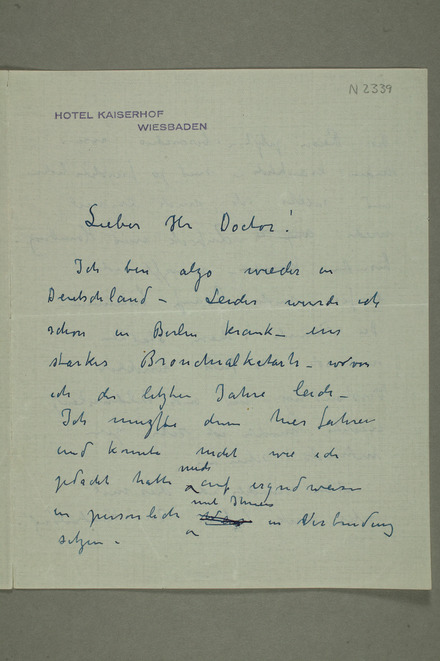 N 2339
HOTEL KAISERHOF
WIESBADEN
Lieber Hr Doctor!
Ich bin also wieder in
Deutschland – Leider wurde ich
schon in Berlin krank – ein
starker Bronchialkatarh – woran
ich die letzten Jahre leide –
Ich mußte dann hier fahren
und konnte nicht wie ich
gedacht hatte mich auf irgendweise
in persönlich mit Ihnen in Verbindung
setzen –